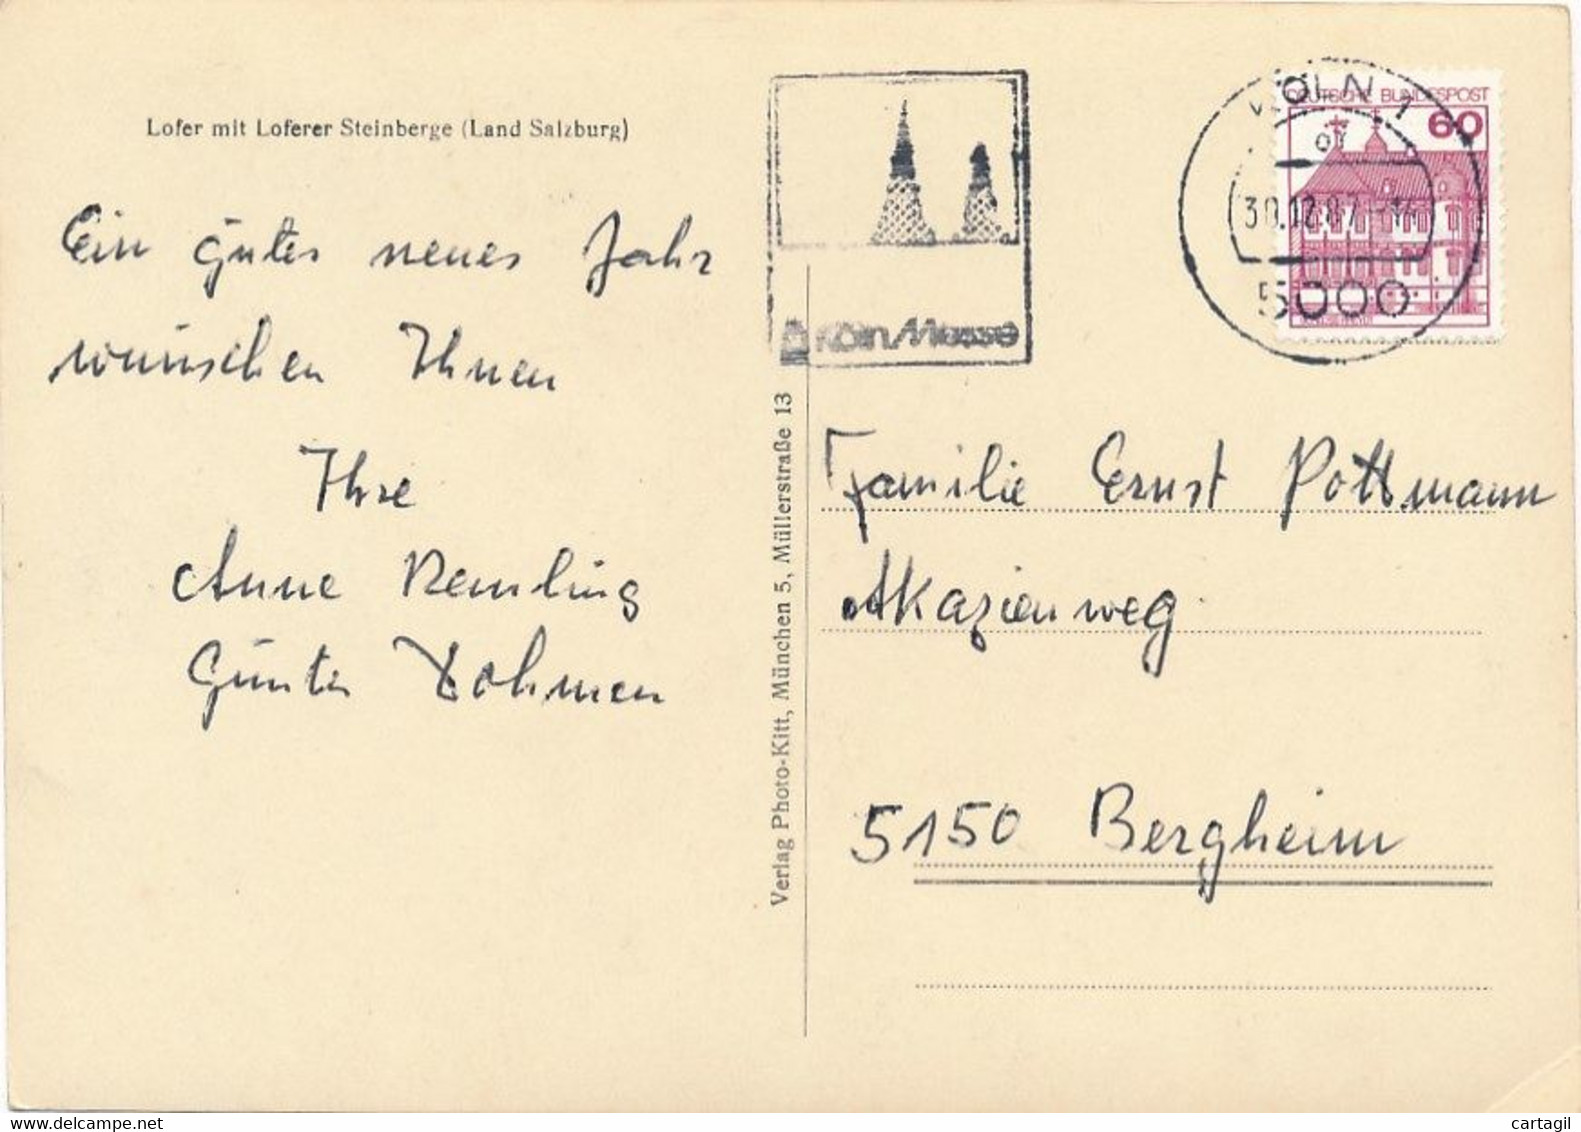 Lofer mit Loferer Steinberge (Land Salzburg)
Ein gutes neues Jahr
wünschen Ihnen
Ihre
Anne Remling
Günter Dohmen
Verlag Photo-Kitt, München 5, Müllerstraße 13
Köln Messe
KÖLN 1
30.12.87
5000
DEUTSCHE BUNDESPOST
60
Familie Ernst Pottmann
Akazienweg
5150 Bergheim
cartagil